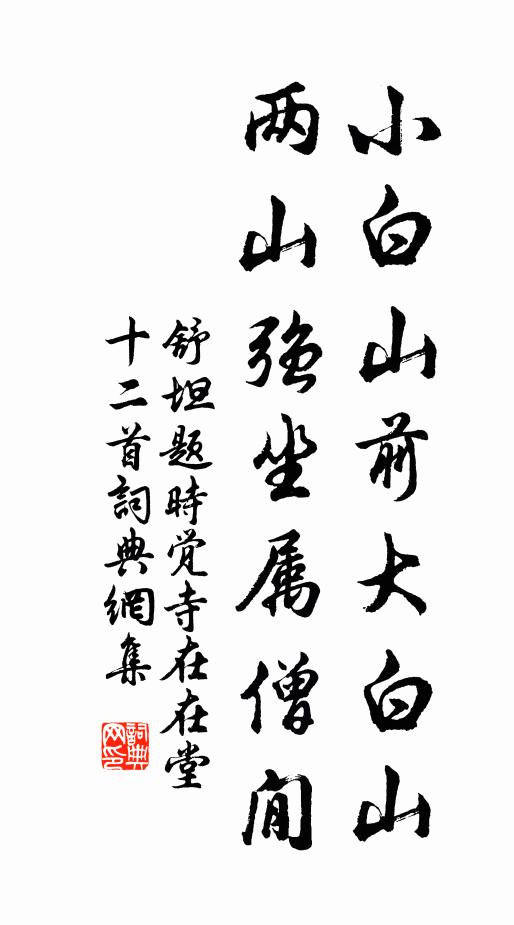 小白山前大白山
两山强坐属僧閒
舒坦题時觉寺在在堂
十二首詞典網集
詞典
网印